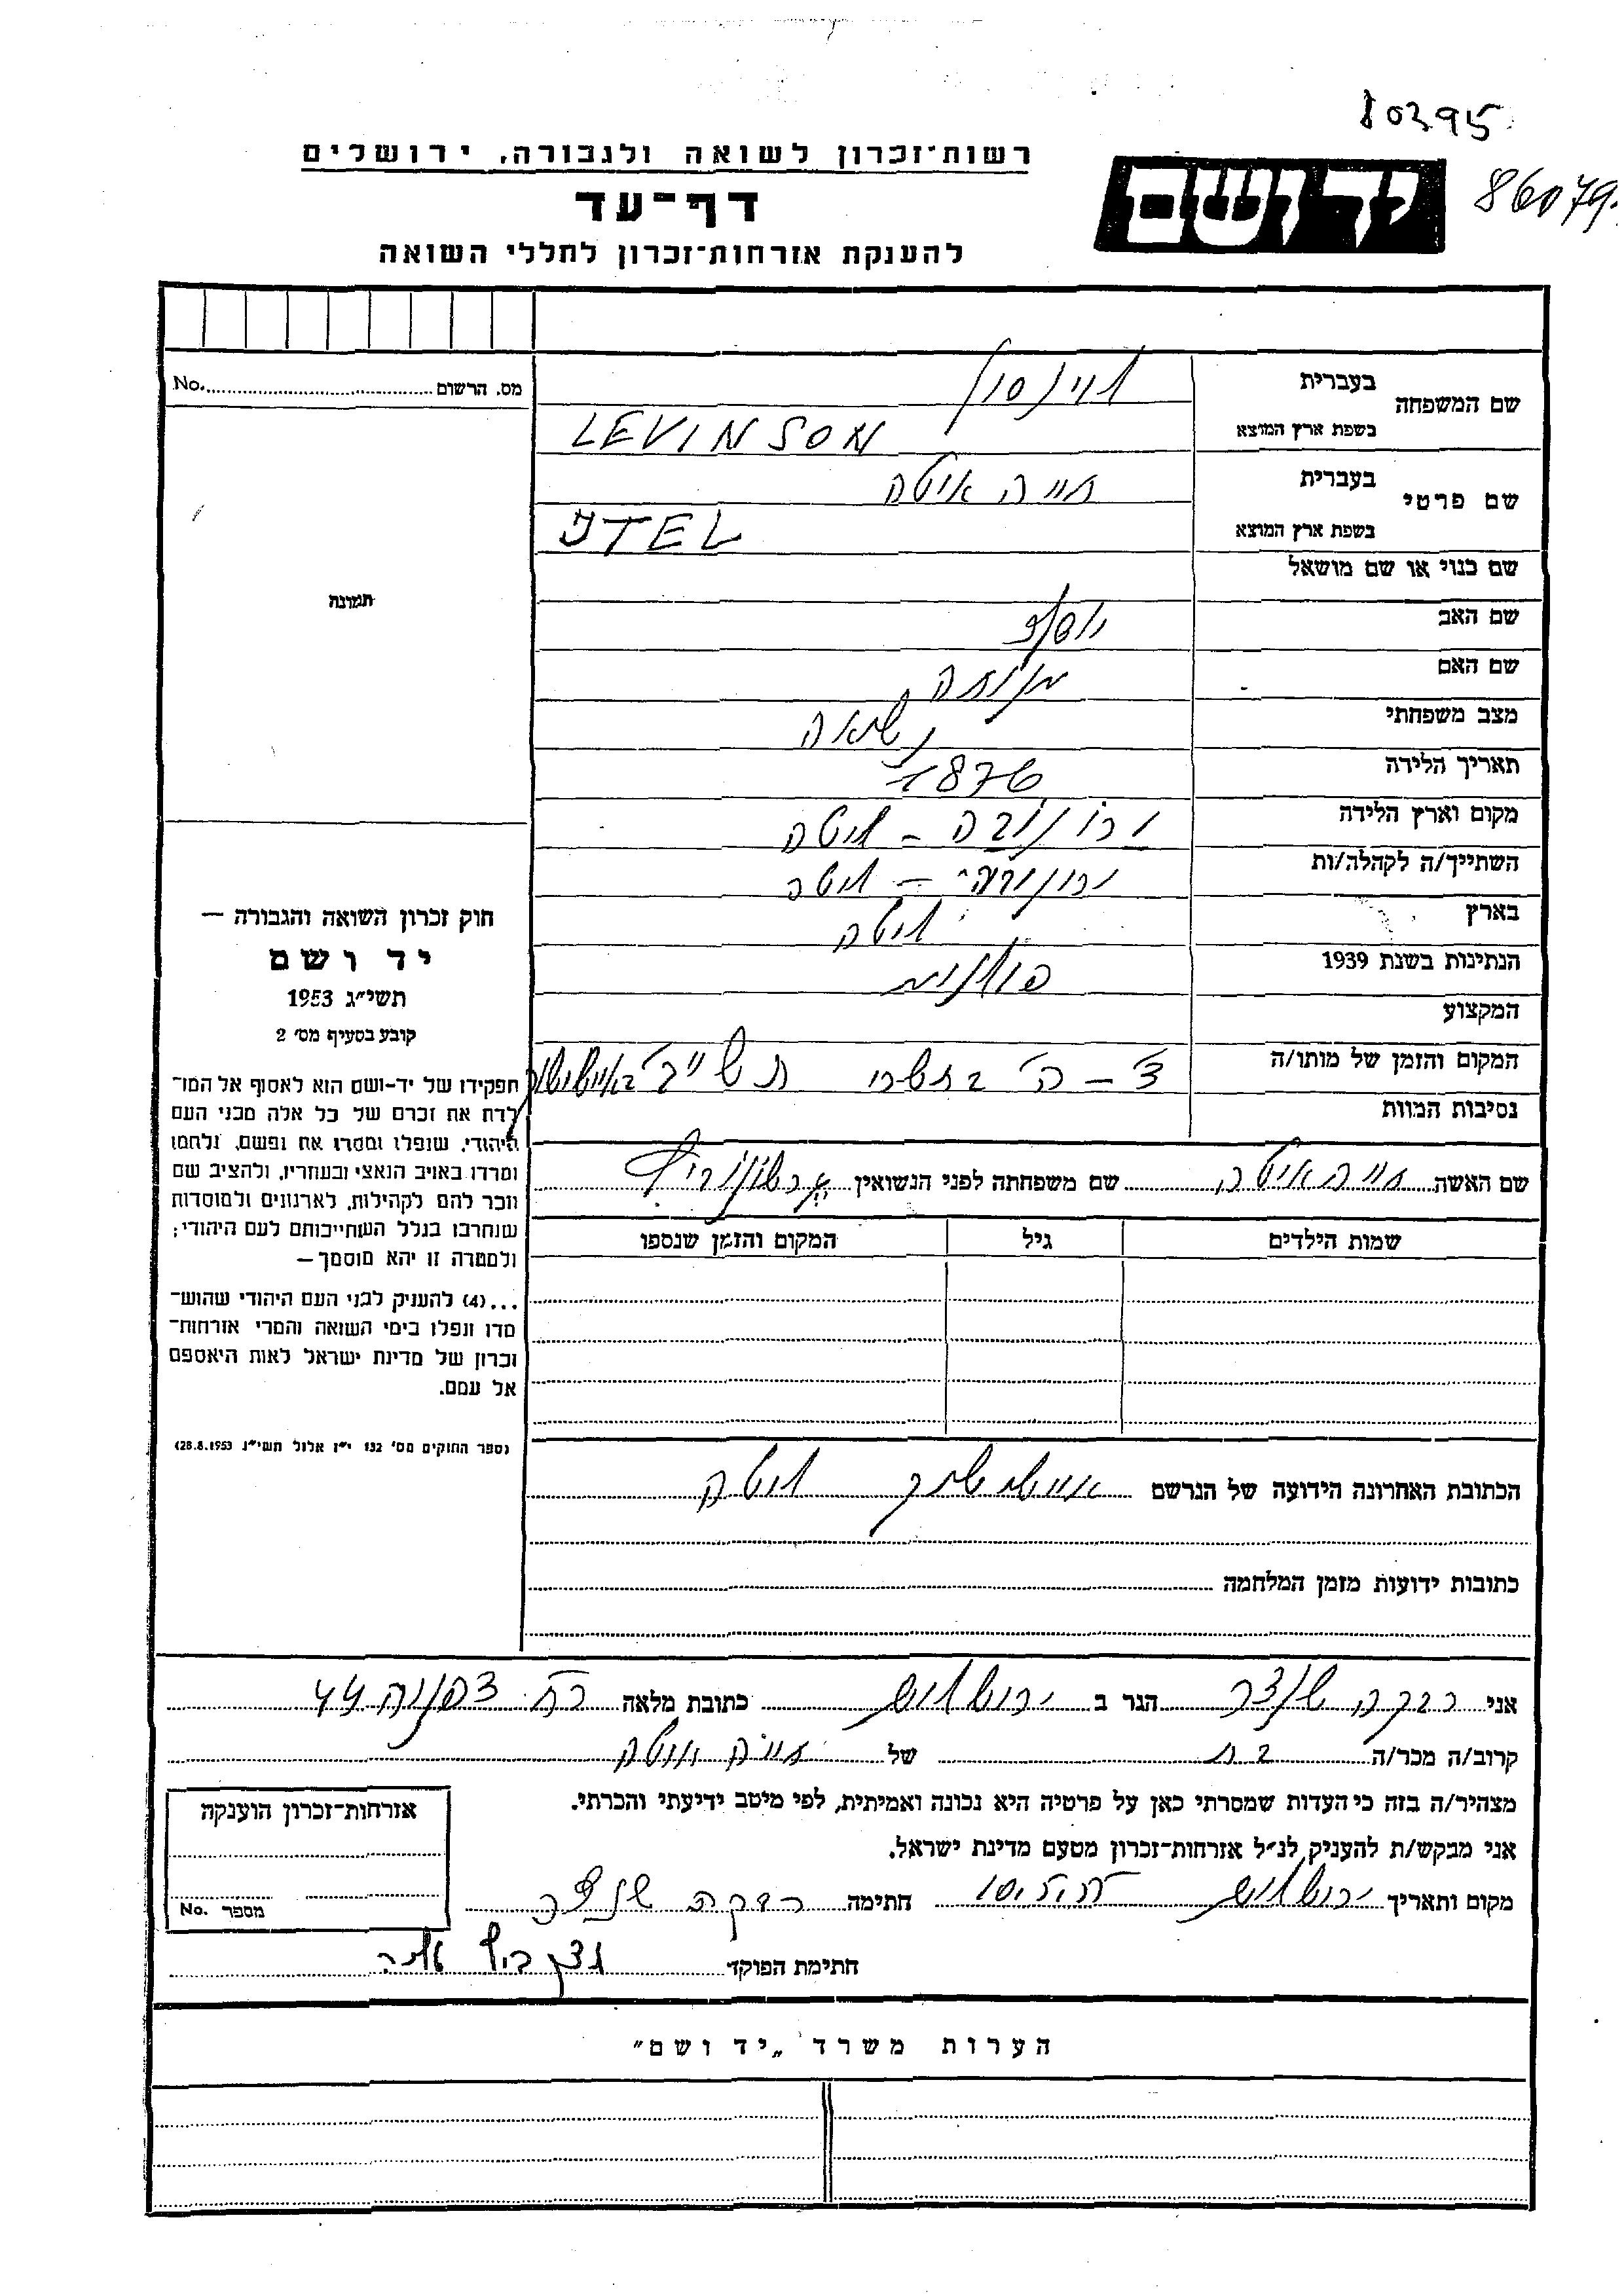 80395
86079
יד ושם
רשות־זכרון לשואה ולגבורה, ירושלים
דף־עד
להענקת אזרחות־זכרון לחללי השואה
שם המשפחה
בעברית לוינסון
בשפת ארץ המוצא LEVINSON
שם פרטי
בעברית חיה איטה
בשפת ארץ המוצא ITEL
שם כנוי או שם מושאל
שם האב יוסף
שם האם
מצב משפחתי נשואה
תאריך הלידה 1876
מקום וארץ הלידה – ליטה
השתייך/ה לקהלה/ות – ליטה
בארץ ליטה
הנתינות בשנת 1939
המקצוע
המקום והזמן של מותו/ה ד – ה' בתשרי תש"ב
נסיבות המוות
שם האשה חיה איטה שם משפחתה לפני הנשואין
שמות הילדים גיל המקום והזמן שנספו
הכתובת האחרונה הידועה של הנרשם אישישוק ליטה
כתובות ידועות מזמן המלחמה
מס. הרשום No.
תמונה
חוק זכרון השואה והגבורה —
יד ושם
תשי״ג 1953
קובע בסעיף מס׳ 2
תפקידו של יד-ושם הוא לאסוף אל המו־
לדת את זכרם של כל אלה מבני העם
היהודי, שנפלו ומסרו את נפשם, נלחמו
ומרדו באויב הנאצי ובעוזריו, ולהציב שם
וזכר להם לקהילות, לארגונים ולמוסדות
שנחרבו בגלל השתייכותם לעם היהודי;
ולמטרה זו יהא מוסמך —
...(4) להעניק לבני העם היהודי שהוש־
מדו ונפלו בימי השואה והמרי אזרחות־
זכרון של מדינת ישראל לאות היאספם
אל עמם.
(ספר החוקים מס׳ 132 י״ז אלול תשי״ג 28.8.1953)
אני רבקה שנצר הגר ב ירושלים כתובת מלאה רח׳ צפניה 44
קרוב/ה מכר/ה בת של חיה איטה
מצהיר/ה בזה כי העדות שמסרתי כאן על פרטיה היא נכונה ואמיתית, לפי מיטב ידיעתי והכרתי.
אני מבקש/ת להעניק לנ״ל אזרחות־זכרון מטעם מדינת ישראל.
מקום ותאריך ירושלים חתימה רבקה שנצר
חתימת הפוקד
אזרחות־זכרון הוענקה
מספר No.
הערות משרד „יד ושם״